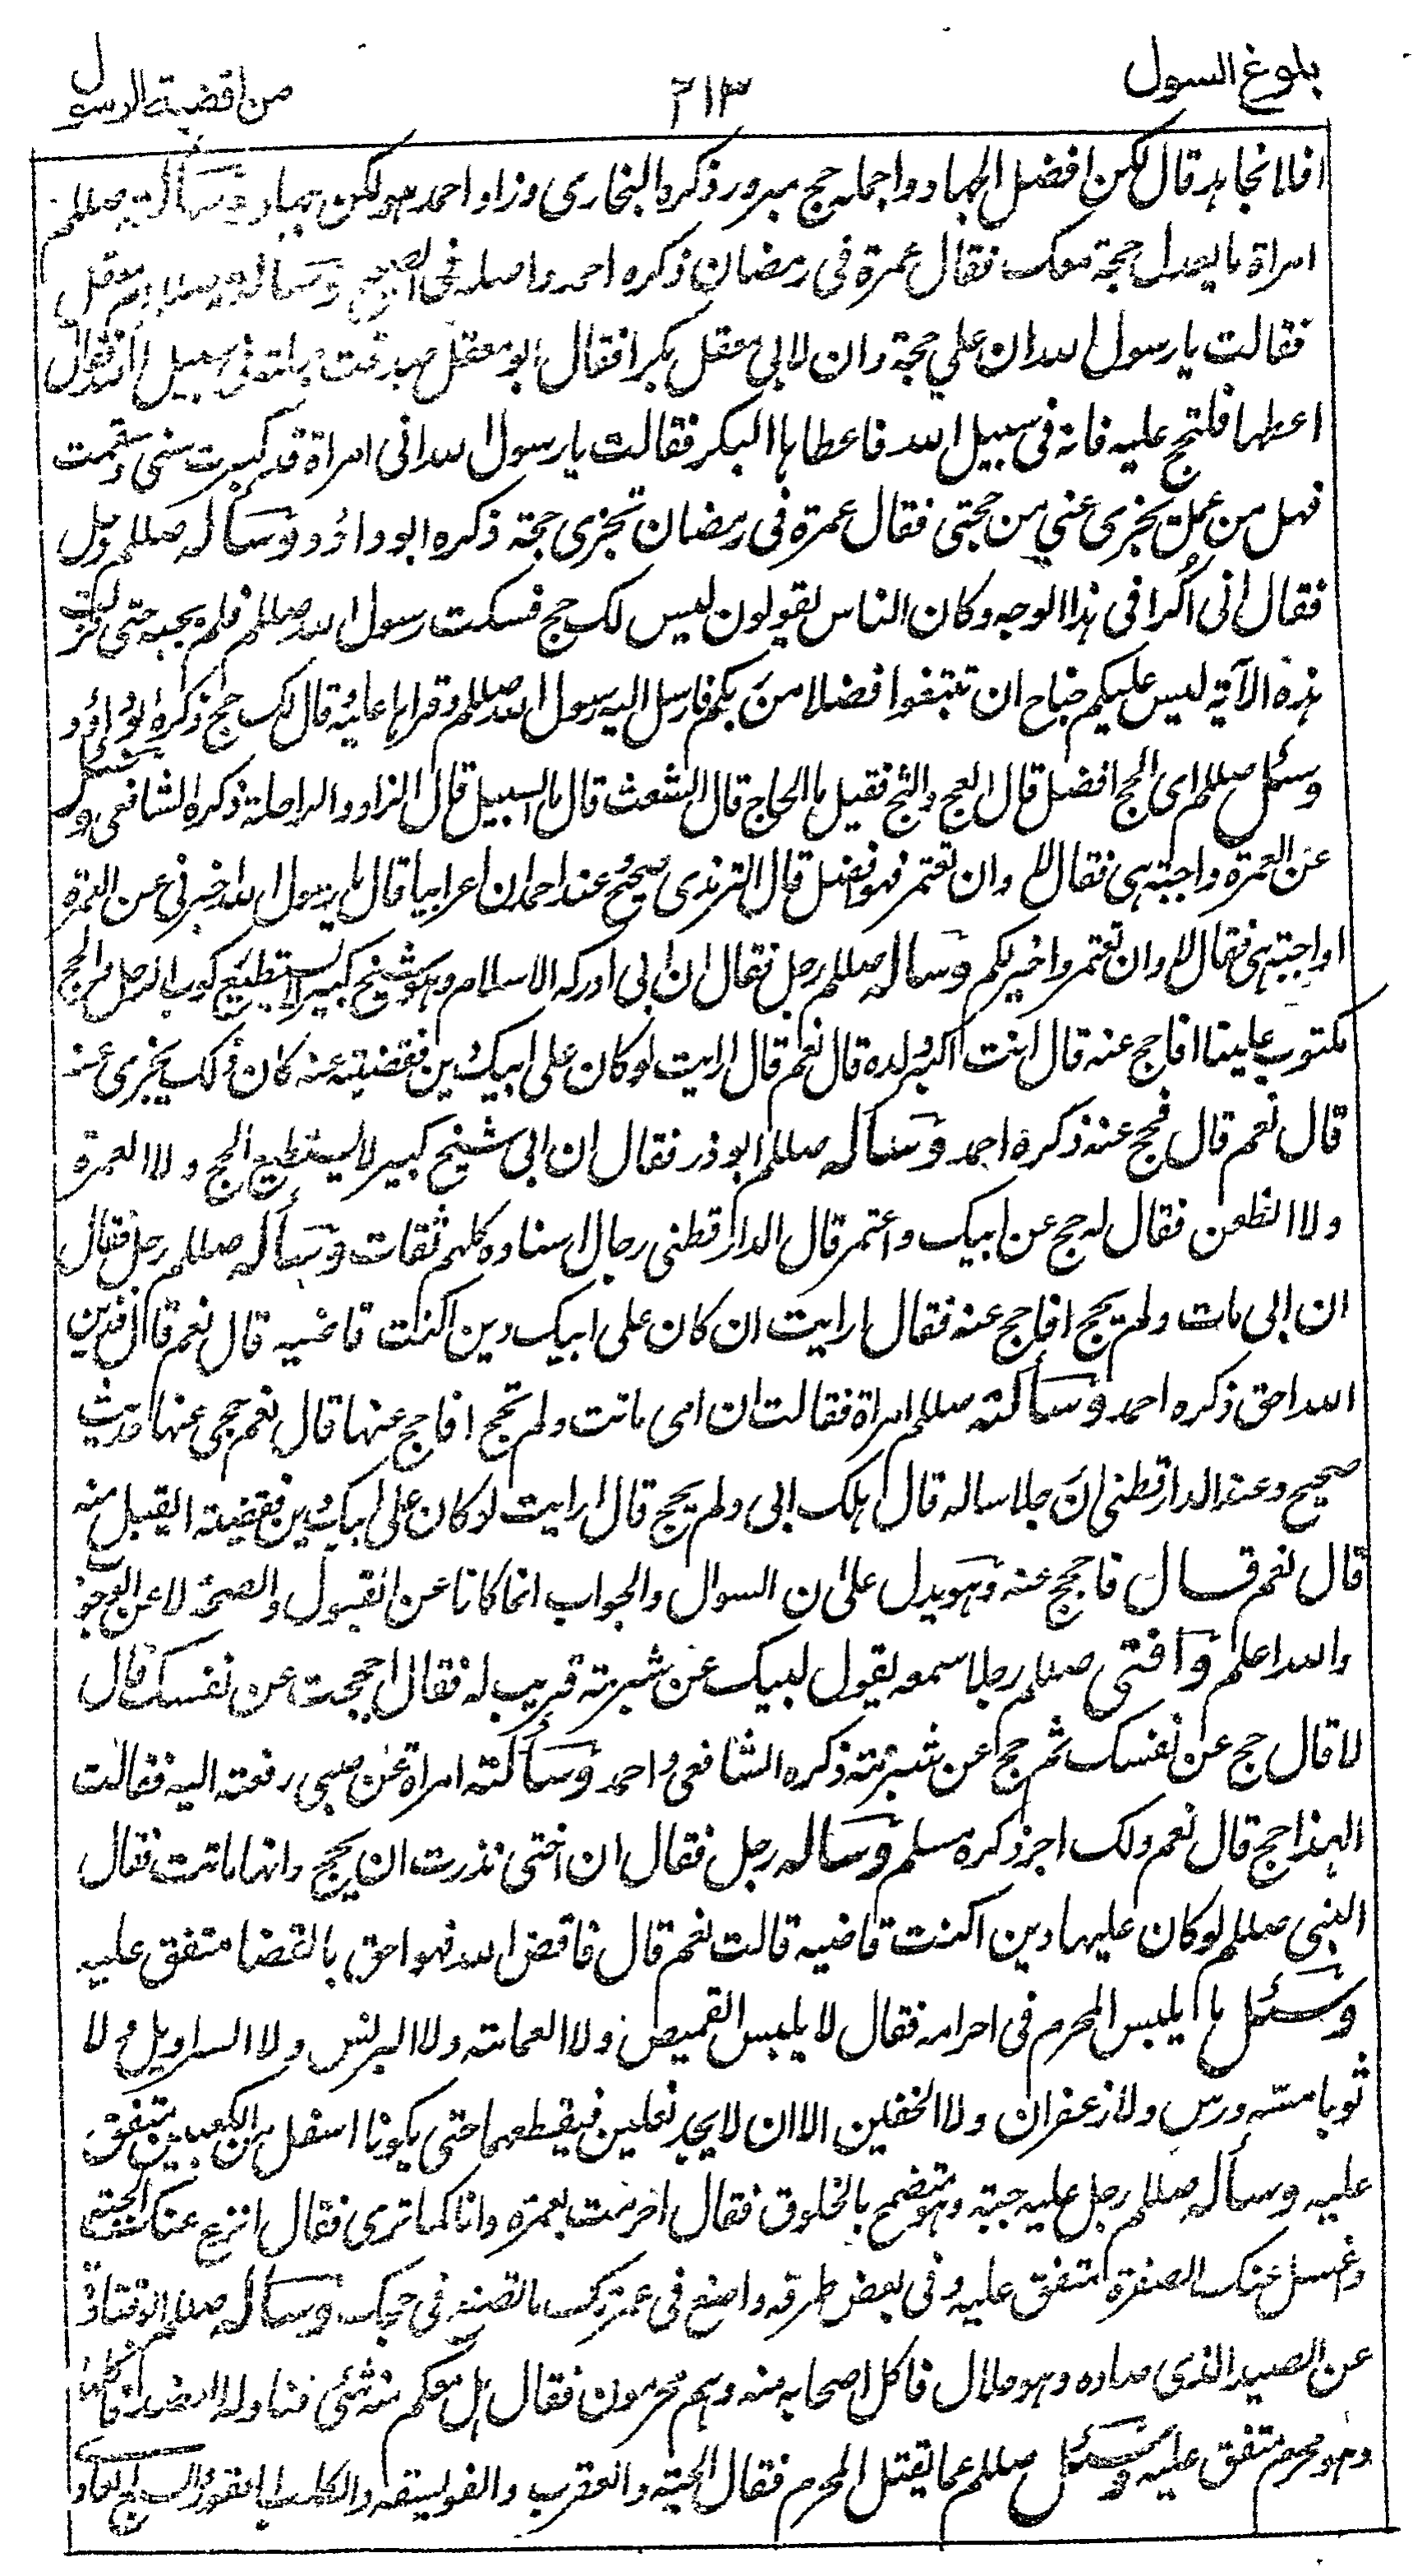 بلوغ السول
٢١٣
من اقضية الرسول
افلا نجاهد قال لكن افضل الجهاد واجمله حج مبرور ذكره البخاري وزاد احمد هو لكن جهاد وسألته صللم
امراة ما يعدل حجة معك فقال عمرة فى رمضان ذكره احمد واصله فى الصحيح وسألته صللم ام معقل
فقالت يا رسول الله ان علي حجة وان لابي معقل بكرا فقال ابو معقل صدقت جعلته فى سبيل الله فقال
اعطها فلتحج عليه فانه فى سبيل الله فاعطاها البكر فقالت يا رسول الله انى امراة قد كبرت سنى وسقمت
فهل من عمل يجزى عني من حجتى فقال عمرة فى رمضان تجزى حجة ذكره ابو داؤد وسأله صللم رجل
فقال انى اكرا فى هذا الوجه وكان الناس يقولون ليس لك حج فسكت رسول الله صللم فلم يجبه حتى نزلت
هذه الآية ليس عليكم جناح ان تبتغوا فضلا من ربكم فارسل اليه رسول الله صللم وقراها عليه وقال لك حج ذكره ابو داؤد
وسئل صللم اى الحج افضل قال العج والثج فقيل ما الحاج قال الشعث قال ما السبيل قال الزاد والراحلة ذكره الشافعى وسئل
عن العمرة واجبة هى فقال لا وان تعتمر فهو افضل قال الترمذى صحيح وعند احمد ان اعرابيا قال يا رسول الله اخبرنى عن العمرة
اواجبة هى فقال لا وان تعتمروا خير لكم وسأله صللم رجل فقال ان ابى ادركه الاسلام وهو شيخ كبير لا يستطيع ركوب الرحل والحج
مكتوب علينا افاحج عنه قال انت اكبر ولده قال نعم قال ارايت لو كان على ابيك دين فقضيته عنه كان ذلك يجزى عنه
قال نعم قال فحج عنه ذكره احمد وسأله صللم ابو ذر فقال ان ابى شيخ كبير لا يستطيع الحج ولا العمرة
ولا الظعن فقال له حج عن ابيك واعتمر قال الدارقطنى رجال اسناده كلهم ثقات وسأله صللم رجل فقال
ان ابى مات ولم يحج افاحج عنه فقال ارايت ان كان على ابيك دين اكنت قاضيه قال نعم قال فدين
الله احق ذكره احمد وسألته صللم امراة فقالت ان امى ماتت ولم تحج افاحج عنها قال نعم حجى عنها حديث
صحيح وعند الدارقطنى ان رجلا ساله قال هلك ابى ولم يحج قال ارايت لو كان على ابيك دين فقضيته ايقبل منه
قال نعم قال فاحجج عنه وهو يدل على ان السوال والجواب انما كانا عن القبول والصحة لا عن الوجوب
والله اعلم وافتى صللم رجلا سمعه يقول لبيك عن شبرمة قريب له فقال احججت عن نفسك قال
لا قال حج عن نفسك ثم حج عن شبرمة ذكره الشافعى واحمد وسألته امراة عن صبى رفعته اليه فقالت
الهذا حج قال نعم ولك اجر ذكره مسلم وسأله رجل فقال ان اختى نذرت ان يحج وانها ماتت فقال
النبى صللم لو كان عليها دين اكنت قاضيه قالت نعم قال فاقض الله فهو احق بالقضا متفق عليه
وسئل ما يلبس المحرم فى احرامه فقال لا يلبس القميص ولا العمامة ولا البرنس ولا السراويل ولا
ثوبا مسه ورس ولا زعفران ولا الخفين الا ان لا يجد نعلين فيقطعهما حتى يكونا اسفل من الكعبين متفق
عليه وسأله صللم رجل عليه جبة وهو متضمخ بالخلوق فقال احرمت بعمرة وانا كما ترى فقال انزع عنك الجبة
وغسل عنك الصفرة متفق عليه وفى بعض طرقه واصنع فى عمرتك ما تصنع فى حجك وسأله صللم ابو قتادة
عن الصيد الذى صاده وهو حلال فاكل اصحابه منه وهم محرمون فقال هل معكم منه شئ فناوله العضد فاكلها
وهو محرم متفق عليه وسئل صللم عما يقتل المحرم فقال الحية والعقرب والفويسقة والكلب العقور والسبع العاد